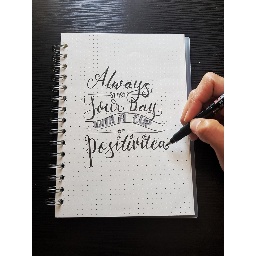 Always
start
Your Day
with a cup
of
Positivitea